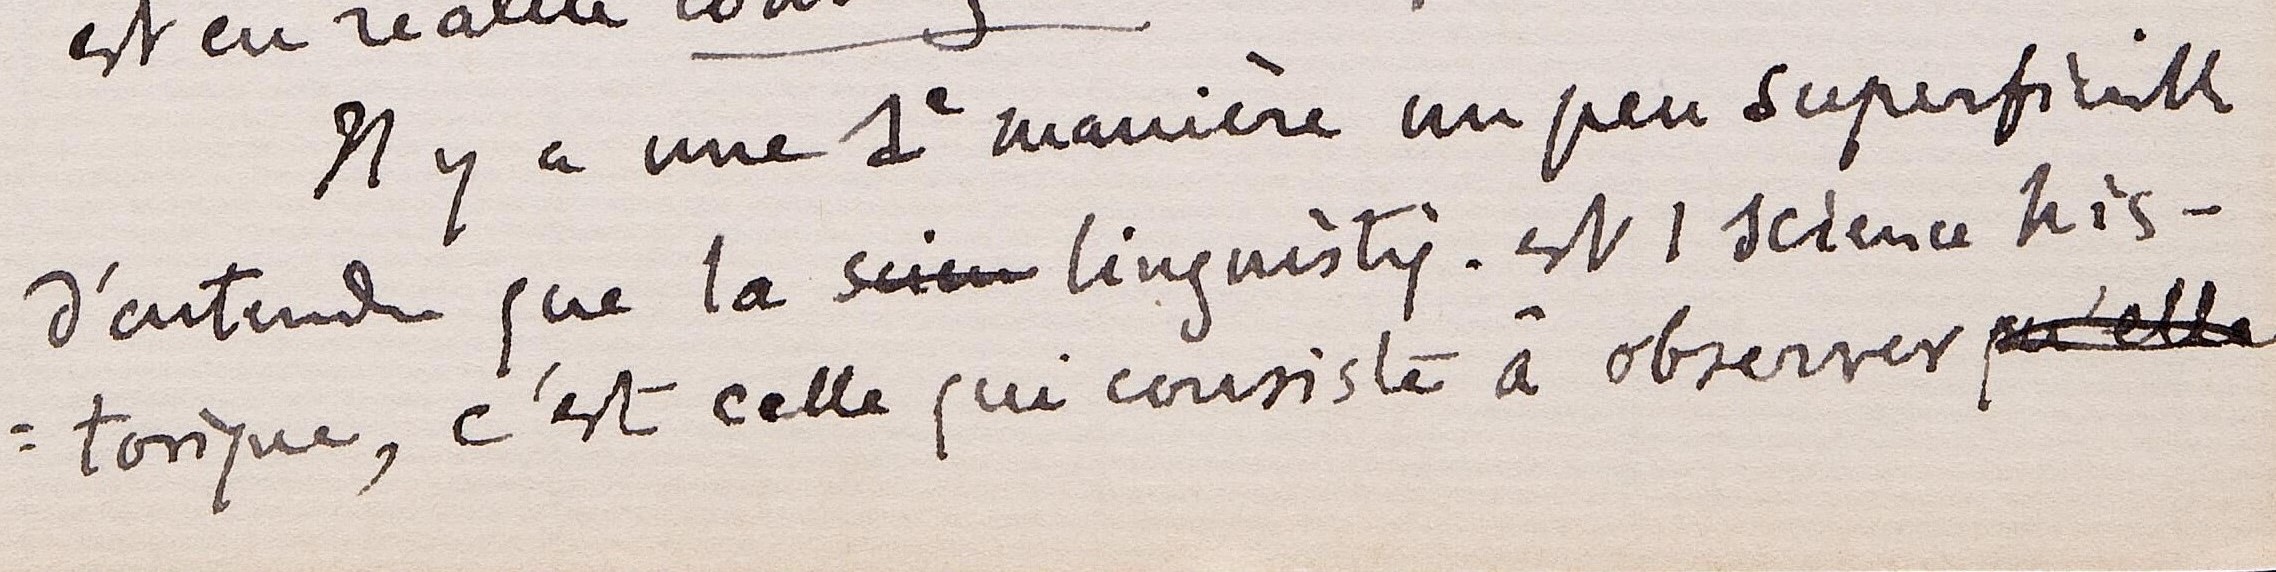 est en réalité
Il y a une 1e manière un peu superficielle
d'entendre que la scien linguistiq. est 1 science his-
=torique, c'est celle qui consiste à observer qu'elle